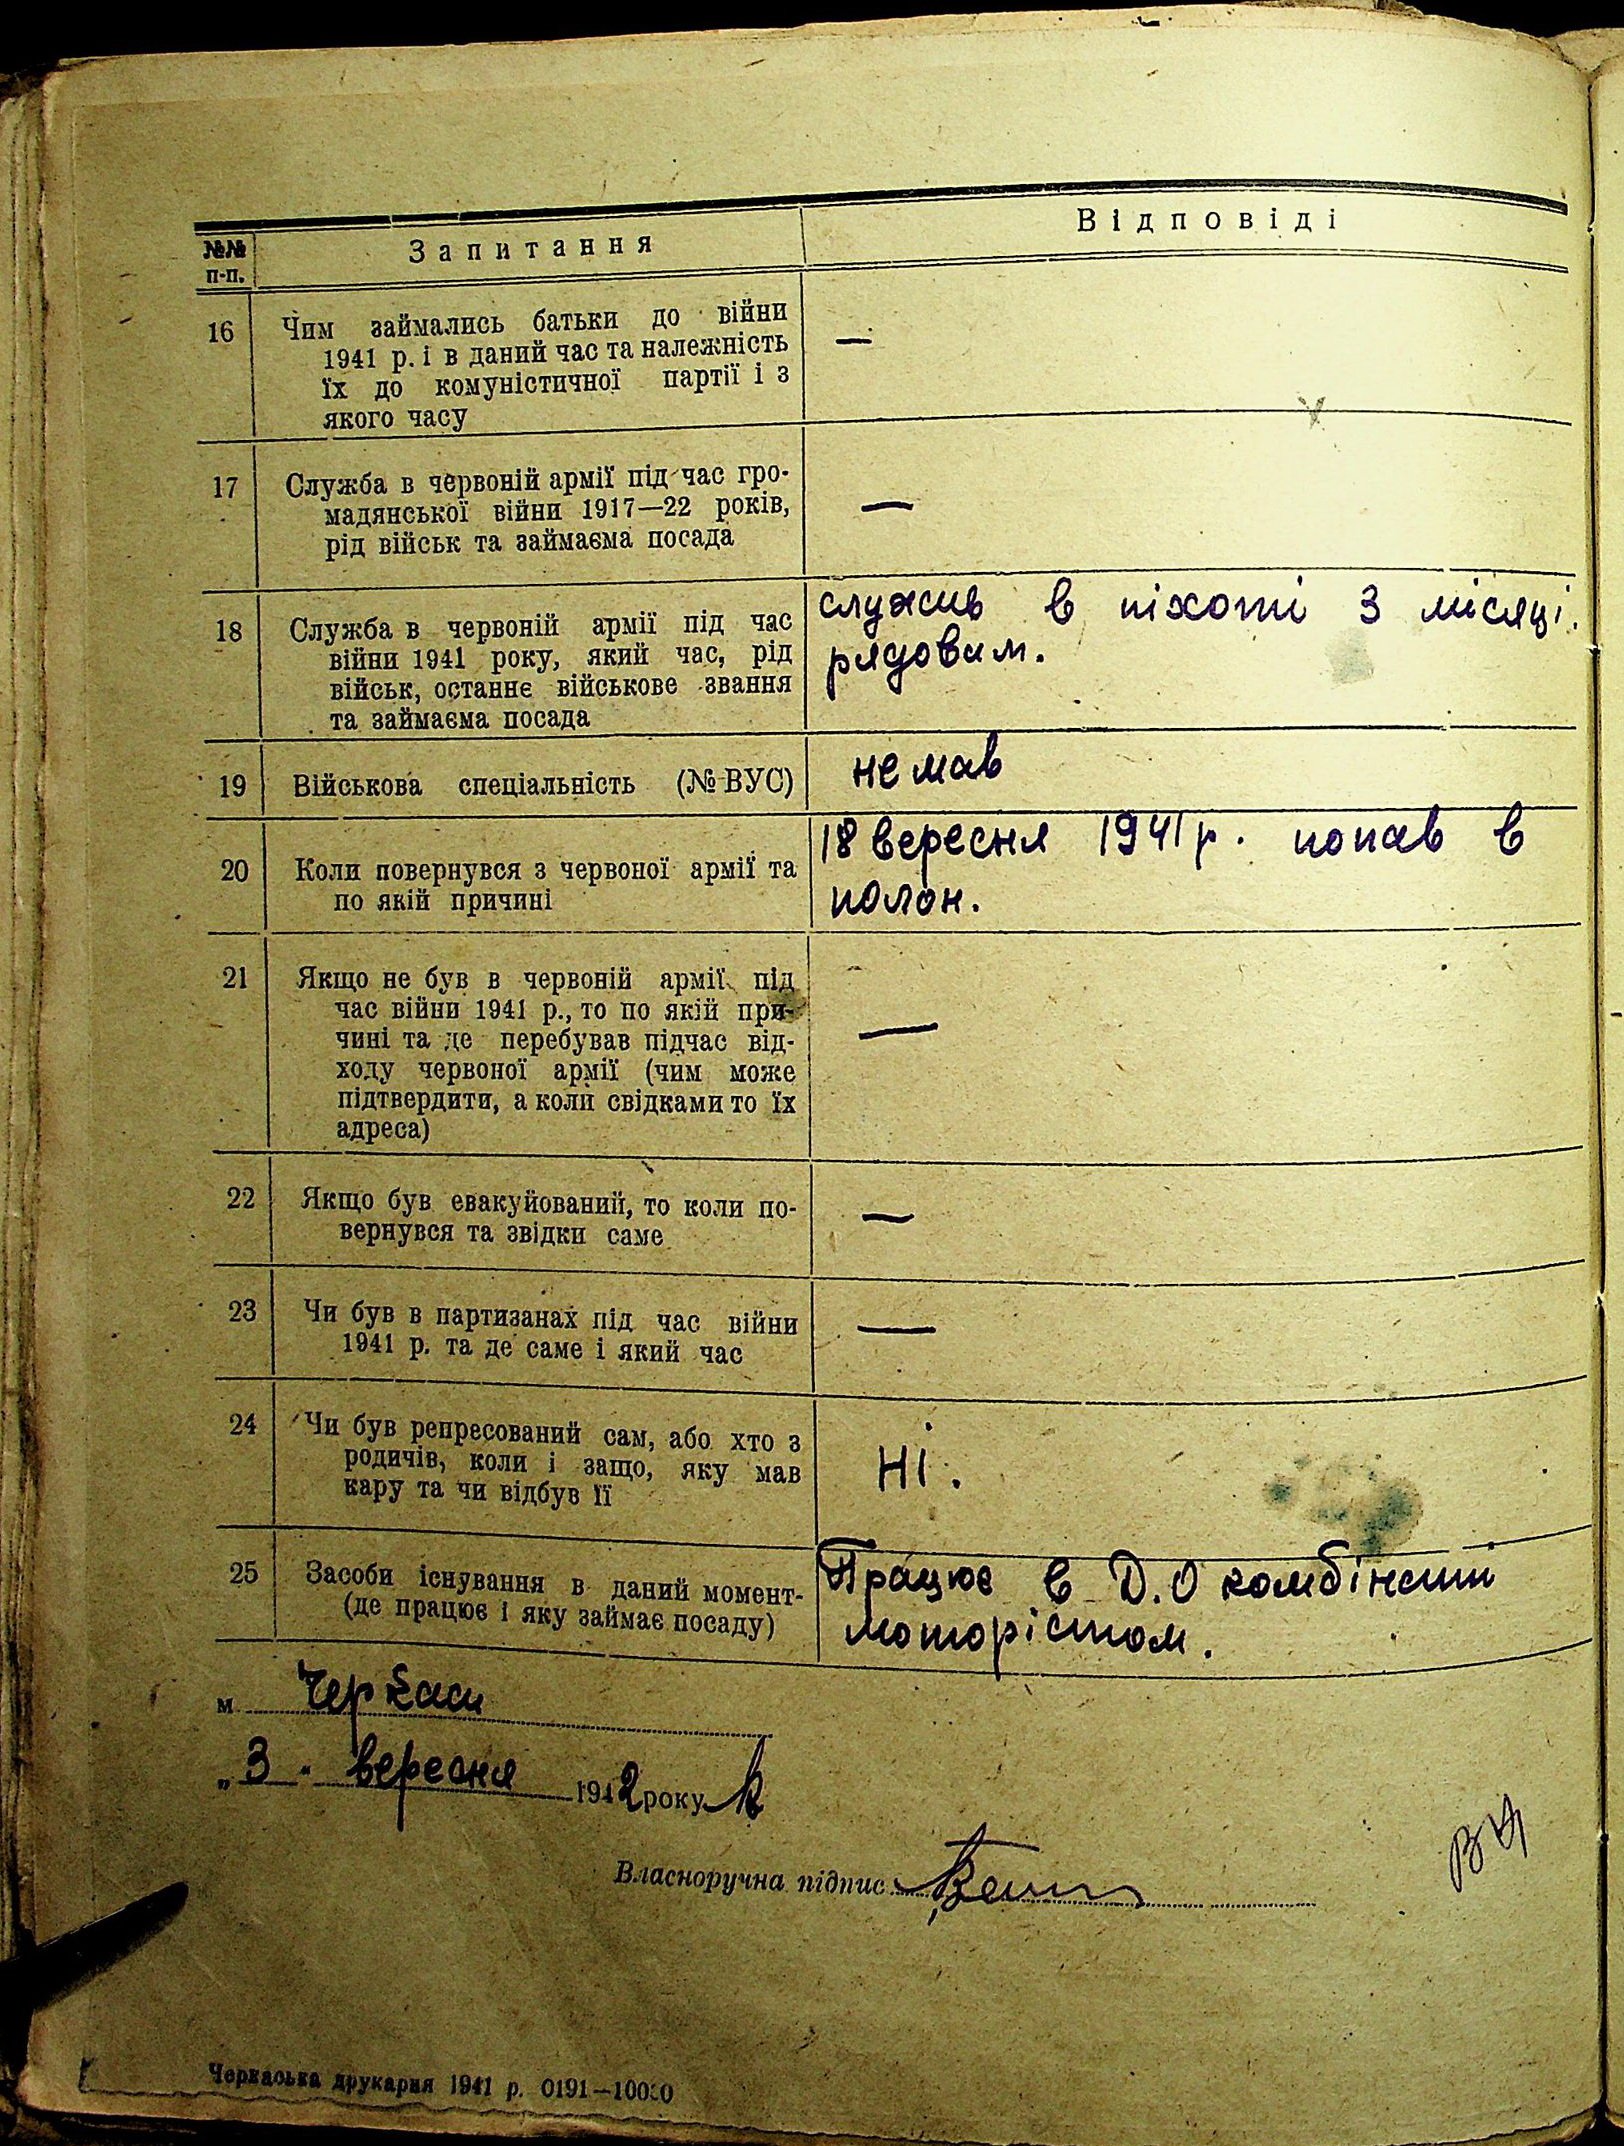 №№ п-п.
Запитання
Відповіді
16
Чим займались батьки до війни
1941 р. і в даний час та належність
їх до комуністичної партії і з
якого часу
—
17
Служба в червоній армії під час гро-
мадянської війни 1917—22 років,
рід військ та займаєма посада
—
18
Служба в червоній армії під час
війни 1941 року, який час, рід
військ, останнє військове звання
та займаєма посада
служив в піхоті 3 місяці.
рядовим.
19
Військова спеціальність (№ ВУС)
не мав
20
Коли повернувся з червоної армії та
по якій причині
18 вересня 1941 р. попав в
полон.
21
Якщо не був в червоній армії під
час війни 1941 р., то по якій при-
чині та де перебував підчас від-
ходу червоної армії (чим може
підтвердити, а коли свідками то їх
адреса)
—
22
Якщо був евакуйований, то коли по-
вернувся та звідки саме
—
23
Чи був в партизанах під час війни
1941 р. та де саме і який час
—
24
Чи був репресований сам, або хто з
родичів, коли і защо, яку мав
кару та чи відбув її
Ні.
25
Засоби існування в даний момент-
(де працює і яку займає посаду)
Працює в Д.О комбінаті
мотористом.
м. Черкаси
„3" вересня 1942 року
Власноручна підпис
Черкаська друкарня 1941 р. 0191—10000